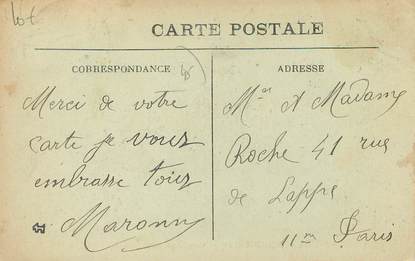 Lot
CARTE POSTALE
CORRESPONDANCE
Merci de votre
carte je vous
embrasse tous
Maronny
ADRESSE
Mr et Madame
Roche 41 rue
de Lappe
11m Paris